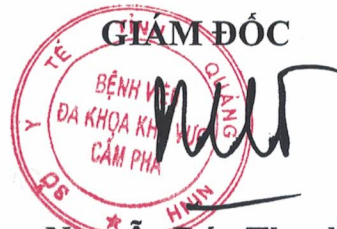 GIÁM ĐỐC
SỞ Y TẾ TỈNH QUẢNG NINH
BỆNH VIỆN
ĐA KHOA KHU VỰC
CẨM PHẢ